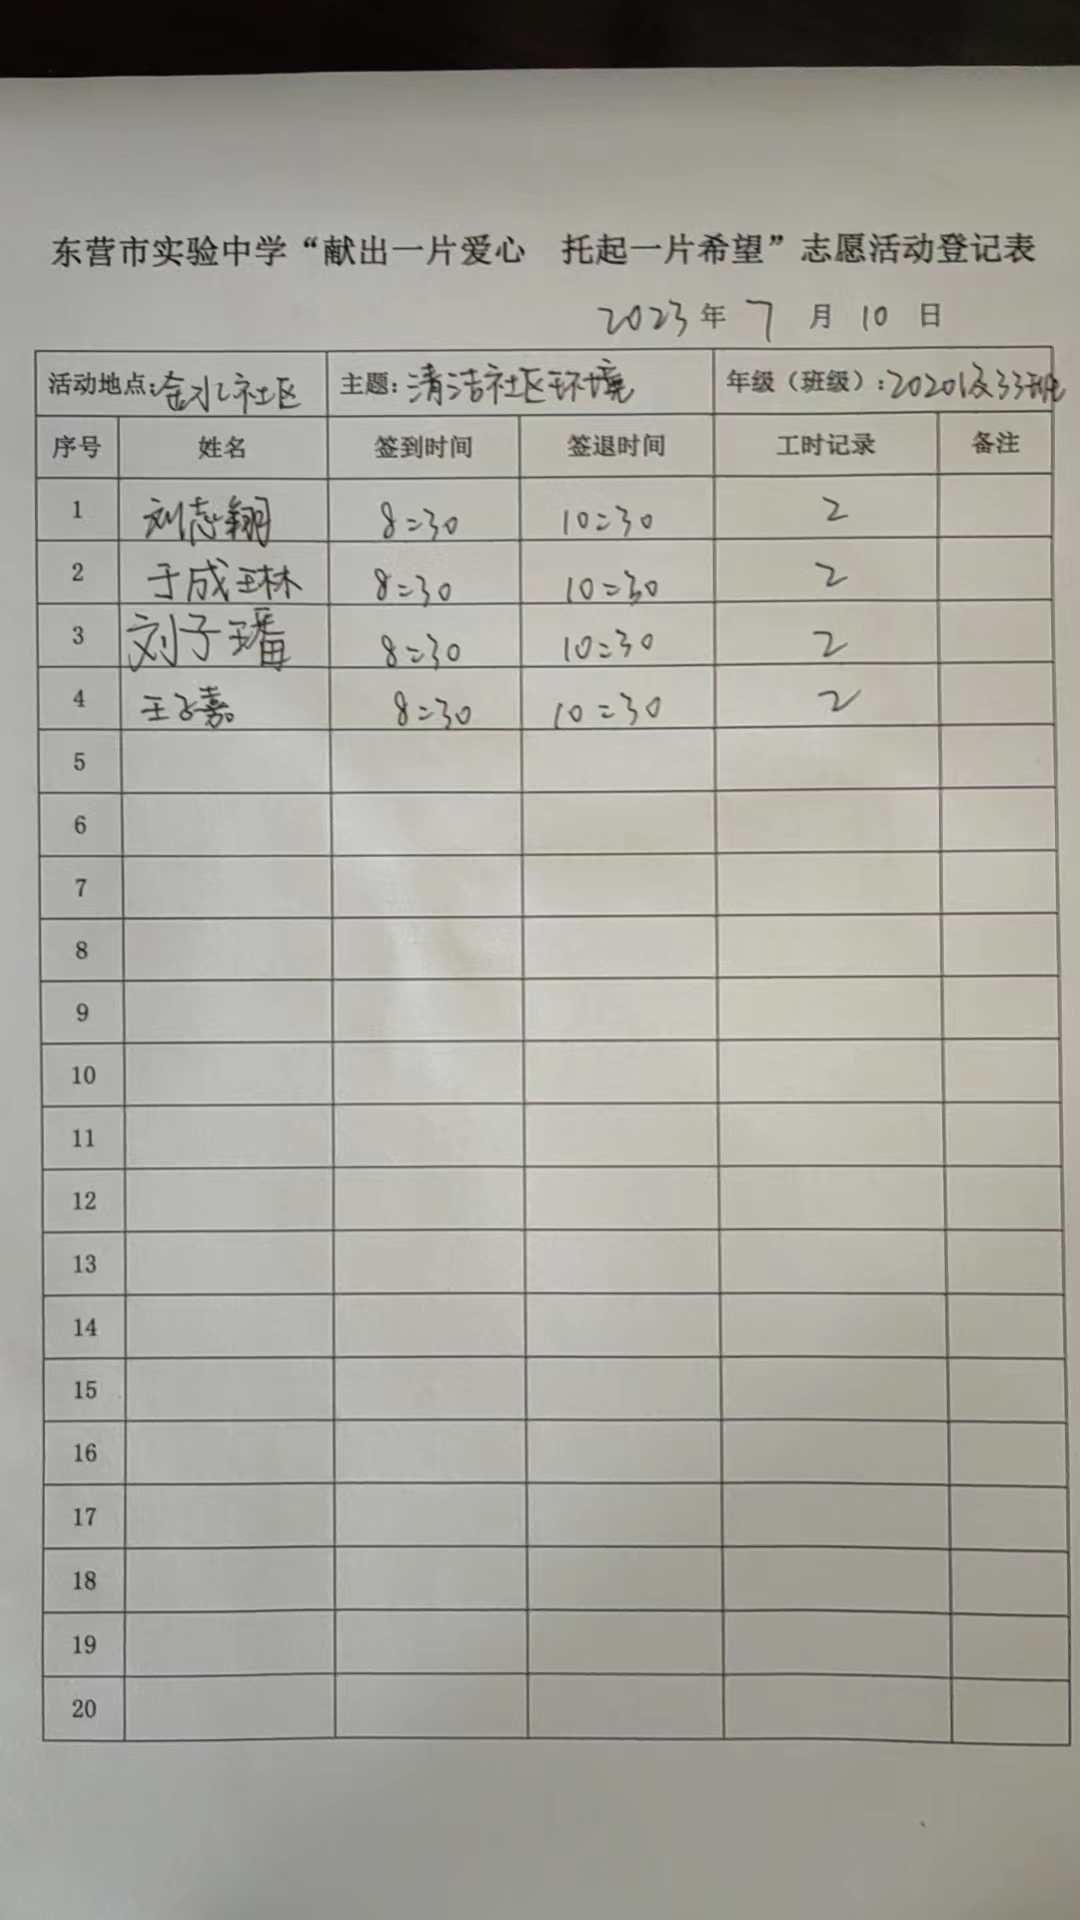 东营市实验中学“献出一片爱心 托起一片希望”志愿活动登记表
2023年 7 月 10 日
活动地点:金水社区 主题:清洁社区环境 年级（班级）:2020级33班
序号 姓名 签到时间 签退时间 工时记录 备注
1 刘志翔 8:30 10:30 2
2 于成琳 8:30 10:30 2
3 刘子璠 8:30 10:30 2
4 王子嘉 8:30 10:30 2
5
6
7
8
9
10
11
12
13
14
15
16
17
18
19
20